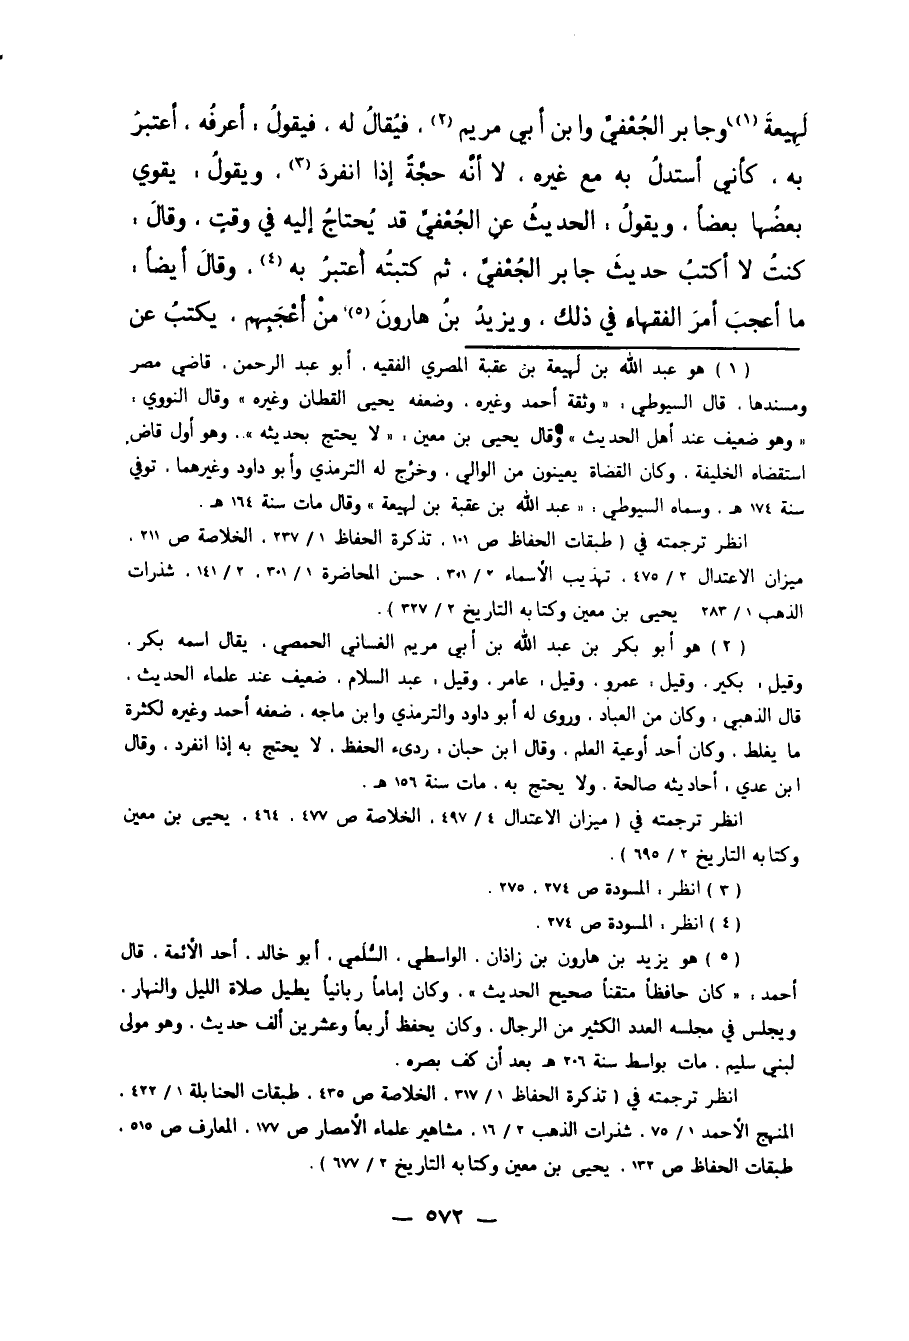 لَهِيعةَ (١) وجابر الجُعْفيِّ وابن أبي مريم (٢) ، فيُقالُ له ، فيقولُ : أعرفُه ، أعتبرُ
به ، كأني أستدلُ به مع غيره ، لا أنَّه حجَّةٌ إذا انفردَ (٣) ، ويقولُ : يقوي
بعضُها بعضاً ، ويقولُ : الحديثُ عنِ الجُعْفيِّ قد يُحتاجُ إليه في وقتٍ ، وقالَ :
كنتُ لا أكتبُ حديثَ جابر الجُعْفيِّ ، ثم كتبتُه أعتبرُ به (٤) ، وقالَ أيضاً :
ما أعجبَ أمرَ الفقهاءِ في ذلك ، ويزيدُ بنُ هارونَ (٥) منْ أَعْجَبِهم ، يكتبُ عن
( ١ ) هو عبد الله بن لهيعة بن عقبة المصري الفقيه ، أبو عبد الرحمن ، قاضي مصر
ومسندها ، قال السيوطي : « وثقة أحمد وغيره ، وضعفه يحيى القطان وغيره » وقال النووي :
« وهو ضعيف عند أهل الحديث » وقال يحيى بن معين : « لا يحتج بحديثه » ، وهو أول قاض
استقضاه الخليفة ، وكان القضاة يعينون من الوالي ، وخرّج له الترمذي وأبو داود وغيرهما ، توفي
سنة ١٧٤ هـ ، وسماه السيوطي : « عبد الله بن عقبة بن لهيعة » وقال مات سنة ١٦٤ هـ .
انظر ترجمته في ( طبقات الحفاظ ص ١٠١ ، تذكرة الحفاظ ١ / ٢٣٧ ، الخلاصة ص ٢١١ ،
ميزان الاعتدال ٢ / ٤٧٥ ، تهذيب الأسماء ٢ / ٣٠١ ، حسن المحاضرة ١ / ٣٠١ ، ٢ / ١٤١ ، شذرات
الذهب ١ / ٢٨٣ يحيى بن معين وكتابه التاريخ ٢ / ٣٢٧ ) .
( ٢ ) هو أبو بكر بن عبد الله بن أبي مريم الغساني الحمصي ، يقال اسمه بكر ،
وقيل : بكير ، وقيل : عمرو ، وقيل : عامر ، وقيل : عبد السلام ، ضعيف عند علماء الحديث ،
قال الذهبي : وكان من العباد ، وروى له أبو داود والترمذي وابن ماجه ، ضعفه أحمد وغيره لكثرة
ما يغلط ، وكان أحد أوعية العلم ، وقال ابن حبان : رديء الحفظ ، لا يحتج به إذا انفرد ، وقال
ابن عدي : أحاديثه صالحة ، ولا يحتج به ، مات سنة ١٥٦ هـ .
انظر ترجمته في ( ميزان الاعتدال ٤ / ٤٩٧ ، الخلاصة ص ٤٧٧ ، ٤٦٤ ، يحيى بن معين
وكتابه التاريخ ٢ / ٦٩٥ ) .
( ٣ ) انظر : المسودة ص ٢٧٤ ، ٢٧٥ .
( ٤ ) انظر : المسودة ص ٢٧٤ .
( ٥ ) هو يزيد بن هارون بن زاذان ، الواسطي ، السُّلَمي ، أبو خالد ، أحد الأئمة ، قال
أحمد : « كان حافظاً متقناً صحيح الحديث » ، وكان إماماً ربانياً يطيل صلاة الليل والنهار ،
ويجلس في مجلسه العدد الكثير من الرجال ، وكان يحفظ أربعاً وعشرين ألف حديث ، وهو مولى
لبني سليم ، مات بواسط سنة ٢٠٦ هـ بعد أن كف بصره .
انظر ترجمته في ( تذكرة الحفاظ ١ / ٣١٧ ، الخلاصة ص ٤٣٥ ، طبقات الحنابلة ١ / ٤٢٢ ،
المنهج الأحمد ١ / ٧٥ ، شذرات الذهب ٢ / ١٦ ، مشاهير علماء الأمصار ص ١٧٧ ، المعارف ص ٥١٥ ،
طبقات الحفاظ ص ١٣٢ ، يحيى بن معين وكتابه التاريخ ٢ / ٦٧٧ ) .
— ٥٧٢ —